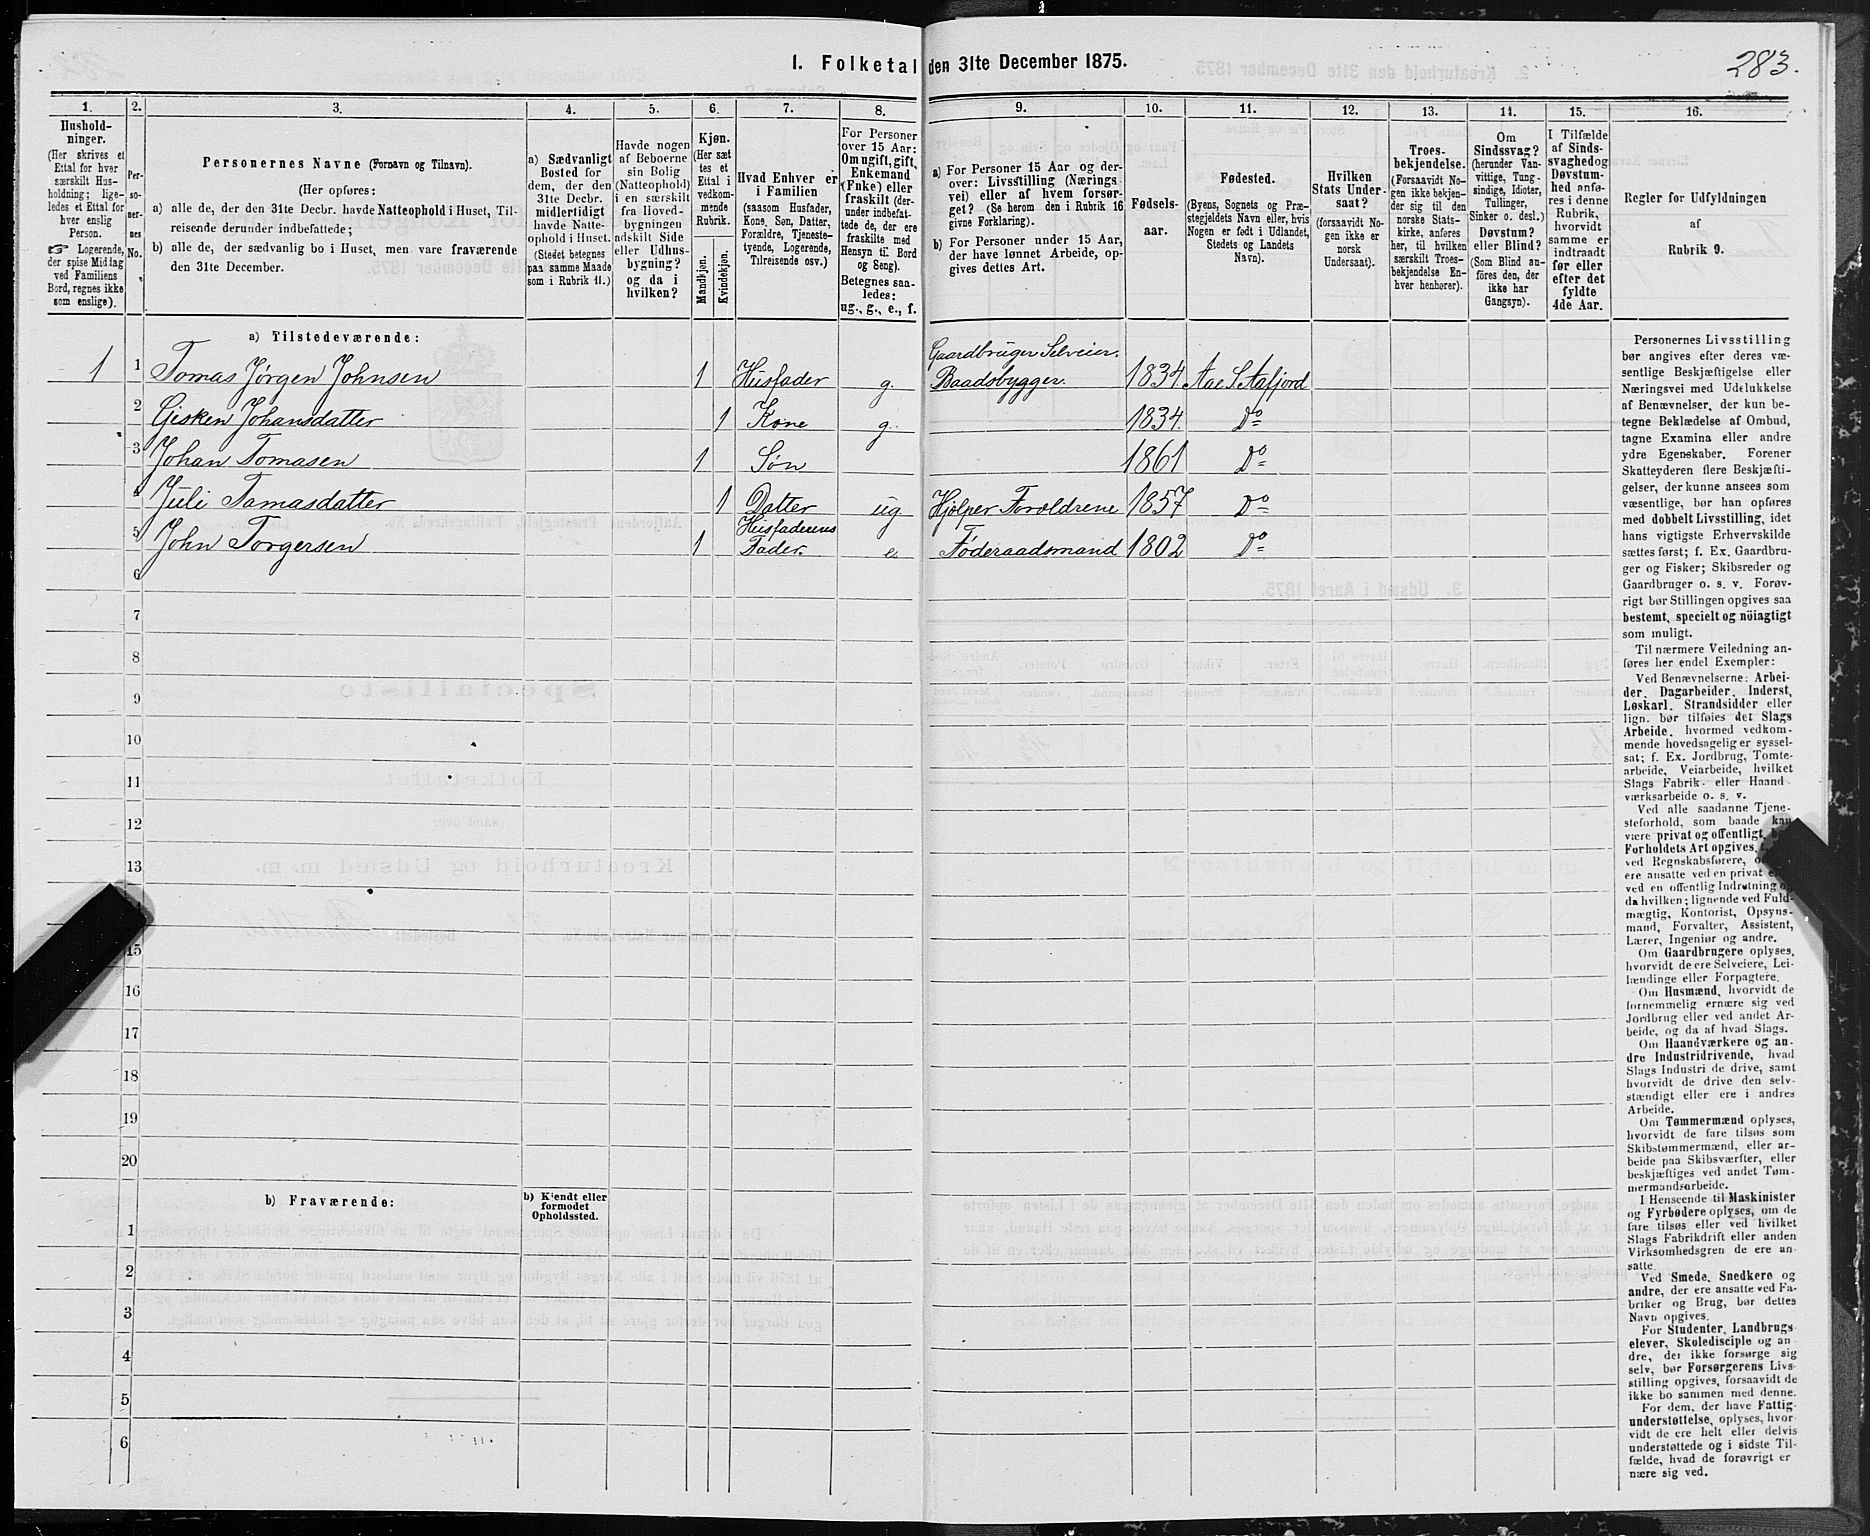 I. Folketal den 31te December 1875.
283.
1.
2.
3.
4.
5.
6.
7.
8.
9.
10.
11.
12.
13.
14.
15.
16.
Hushold-
ninger.
(Her skrives et
Ettal for hver
særskilt Hus-
holdning; lige-
ledes et Ettal for
hver enslig
Person.
☞ Logerende,
der spise Middag
ved Familiens
Bord, regnes ikke
som enslige).
Per-
so-
ner-
nes
No.
Personernes Navne (Fornavn og Tilnavn).
(Her opføres:
a) alle de, der den 31te Decbr. havde Natteophold i Huset, Til-
reisende derunder indbefattede;
b) alle de, der sædvanlig bo i Huset, men vare fraværende
den 31te December.
a) Sædvanligt
Bosted for
dem, der den
31te Decbr.
midlertidigt
havde Natte-
ophold i Huset.
(Stedet betegnes
paa samme Maade
som i Rubrik 11.)
Havde nogen
af Beboerne
sin Bolig
(Natteophold)
i en særskilt
fra Hoved-
bygningen
adskilt Side
eller Udhus-
bygning?
og da i
hvilken?
Kjøn.
(Her sæt
tes et
Ettal i
vedkom-
mende
Rubrik.
Mandkjøn.
Kvindekjøn.
Hvad Enhver er
i Familien
(saasom Husfader,
Kone, Søn, Datter,
Forældre, Tjeneste-
tyende, Logerende,
Tilreisende osv.)
For Personer
over 15 Aar:
Om ugift, gift,
Enkemand
(Enke) eller
fraskilt (der-
under indbefat-
tede de, der ere
fraskilte med
Hensyn til Bord
og Seng).
Betegnes saa-
ledes:
ug., g., e., f.
a) For Personer 15 Aar og der-
over: Livsstilling (Nærings
vei) eller af hvem forsør-
get? (Se herom den i Rubrik 16
givne Forklaring).
b) For Personer under 15 Aar,
der have lønnet Arbeide, op-
gives dettes Art.
Fødsels-
aar.
Fødested.
(Byens, Sognets og Præ-
stegjeldets Navn eller, hvis
Nogen er født i Udlandet,
Stedets og Landets
Navn).
Hvilken
Stats Under-
saat?
(forsaavidt No-
gen ikke er
norsk
Undersaat).
Troes-
bekjendelse.
(Forsaavidt No-
gen ikke bekjen-
der sig til den
norske Stats-
kirke, anføres
her, til hvilken
særskilt Troes-
bekjendelse En-
hver henhører).
Om
Sindssvag?
(herunder Van-
vittige, Tung-
sindige, Idioter,
Tullinger,
Sinker o. desl.)
Døvstum?
eller Blind?
(Som Blind an-
føres den, der
ikke har
Gangsyn).
I Tilfælde
af Sinds-
svaghed og
Døvstum-
hed anfø-
res i denne
Rubrik,
hvorvidt
samme er
indtraadt
før eller
efter det
fyldte
4de Aar.
Regler for Udfyldningen
af
Rubrik 9.
a) Tilstedeværende:
Gaardbruger Selveier.
1 1 Tomas Jørgen Johnsen 1 Husfader g. Baadsbygger. 1834. Aae S. Aafjord
2 Gisken Johansdatter 1 Kone g. 1834. Do
3 Johan Tomasen 1 Søn 1861 Do
4 Juli Tomasdatter 1 Datter ug. Hjelper Forældrene 1857 Do
Husfaderens
5 John Torgersen 1 Fader. e. Føderaadsmand 1802 Do
6
7
8
9
10
11
12
13
15
16
17
18
19
20
b) Fraværende:
b) Kjendt eller
formodet
Opholdssted.
1
2
3
4
5
6
Personernes Livsstilling
bør angives efter deres væ-
sentlige Beskjæftigelse eller
Næringsvei med Udelukkelse
af Benævnelser, der kun be-
tegne Beklædelse af Ombud,
tagne Examina eller andre
ydre Egenskaber. Forener
Skatteyderen flere Beskjæfti-
gelser, der kunne ansees som
væsentlige, bør han opføres
med dobbelt Livsstilling, idet
hans vigtigste Erhvervskilde
sættes først; f. Ex. Gaardbru-
ger og Fisker; Skibsreder og
Gaardbruger o. s. v. Forøv-
rigt bør Stillingen opgives saa
bestemt, specielt og nöiagtigt
som muligt.
Til nærmere Veiledning an-
føres her endel Exempler:
Ved Benævnelserne: Arbei-
der, Dagarbeider, Inderst,
Løskarl, Strandsidder eller
lign. bør tilføies det Slags
Arbeide, hvormed vedkom-
mende hovedsagelig er syssel-
sat; f. Ex. Jordbrug, Tomte-
arbeide, Veiarbeide, hvilket
Slags Fabrik- eller Haand
værksarbeide o. s. v.
Ved alle saadanne Tjene-
steforhold, som baade kan
være privat og offentligt,
Forholdets Art opgives,
ved Regnskabsførere,
ere ansatte ved en privat
ved en offentlig Indretning
da hvilken; lignende ved Fuld-
mægtig, Kontorist, Opsyns-
mand, Forvalter, Assistent,
Lærer, Ingeniør og andre.
Om Gaardbrugere oplyses,
hvorvidt de ere Selveiere, Lei-
lændinge eller Forpagtere.
Om Husmænd, hvorvidt de
fornemmelig ernære sig ved
Jordbrug eller ved andet Ar-
beide, og da af hvad Slags.
Om Haandværkere og an-
dre Industridrivende, hvad
Slags Industri de drive, samt
hvorvidt de drive den selv-
stændigt eller ere i andres
Arbeide.
Om Tømmermænd oplyses,
hvorvidt de fare tilsøs som
Skibstømmermænd, eller ar-
beide paa Skibsværfter, eller
beskjæftiges ved andet Tøm-
mermandsarbeide.
I Henseende til Maskinister
og Fyrbødere oplyses, om de
fare tilsøs eller ved hvilket
Slags Fabrikdrift eller anden
Virksomhedsgren de ere an-
satte.
Ved Smede, Snedkere og
andre, der ere ansatte ved Fa-
briker og Brug, bør dettes
Navn opgives.
For Studenter, Landbrugs-
elever, Skoledisciple og an
dre, der ikke forsørge sig
selv, bør Forsørgerens Livs-
stilling opgives, forsaavidt de
ikke bo sammen med denne.
For dem, der have Fattig-
understøttelse, oplyses, hvor-
vidt de ere helt eller delvis
understøttede og i sidste Til-
fælde, hvad de forøvrigt er
nære sig ved.